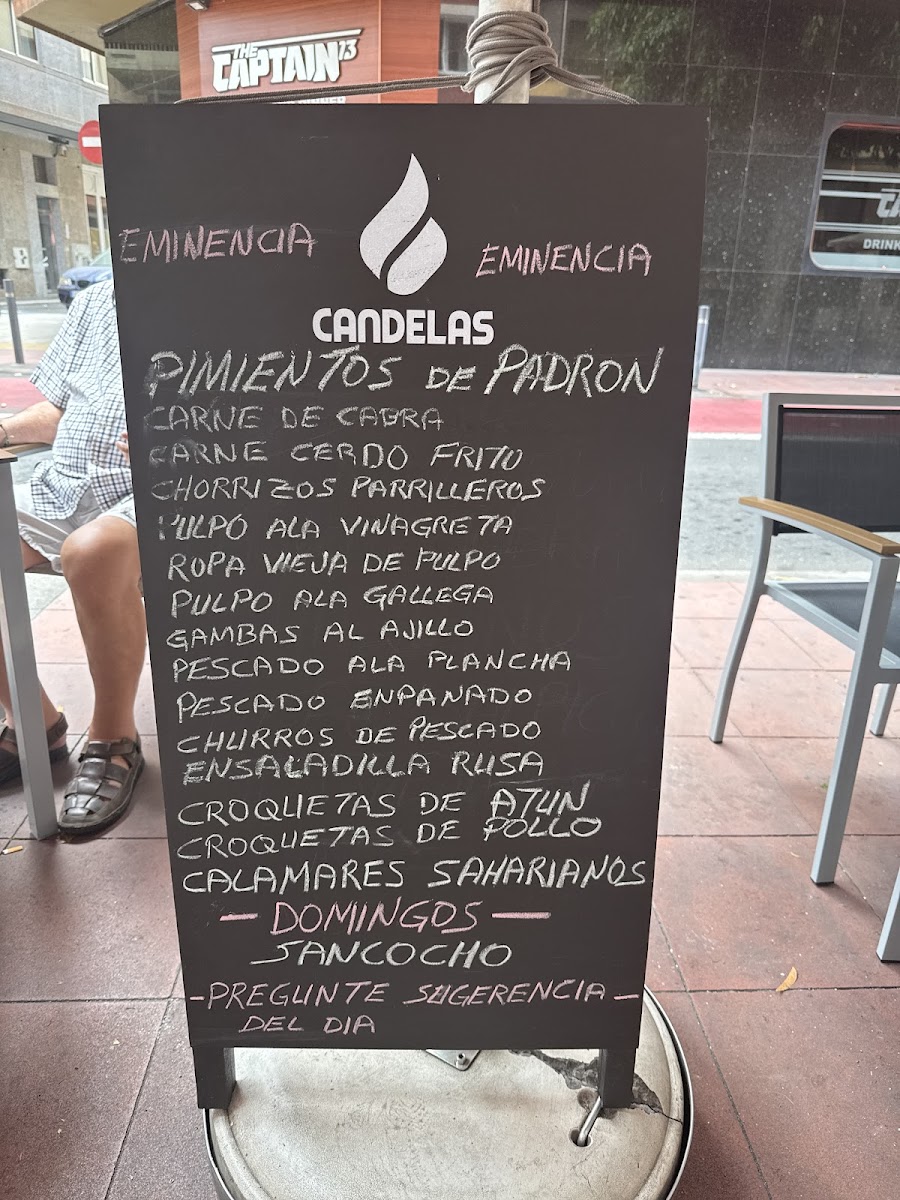 THE
CAPTAIN 23
EMINENCIA
EMINENCIA
CANDELAS
PIMIENTOS DE PADRON
CARNE DE CABRA
CARNE CERDO FRITO
CHORRIZOS PARRILLEROS
PULPO ALA VINAGRETA
ROPA VIEJA DE PULPO
PULPO ALA GALLEGA
GAMBAS AL AJILLO
PESCADO ALA PLANCHA
PESCADO ENPANADO
CHURROS DE PESCADO
ENSALADILLA RUSA
CROQUETAS DE ATUN
CROQUETAS DE POLLO
CALAMARES SAHARIANOS
- DOMINGOS -
SANCOCHO
- PREGUNTE SUGERENCIA -
DEL DIA
DRINK